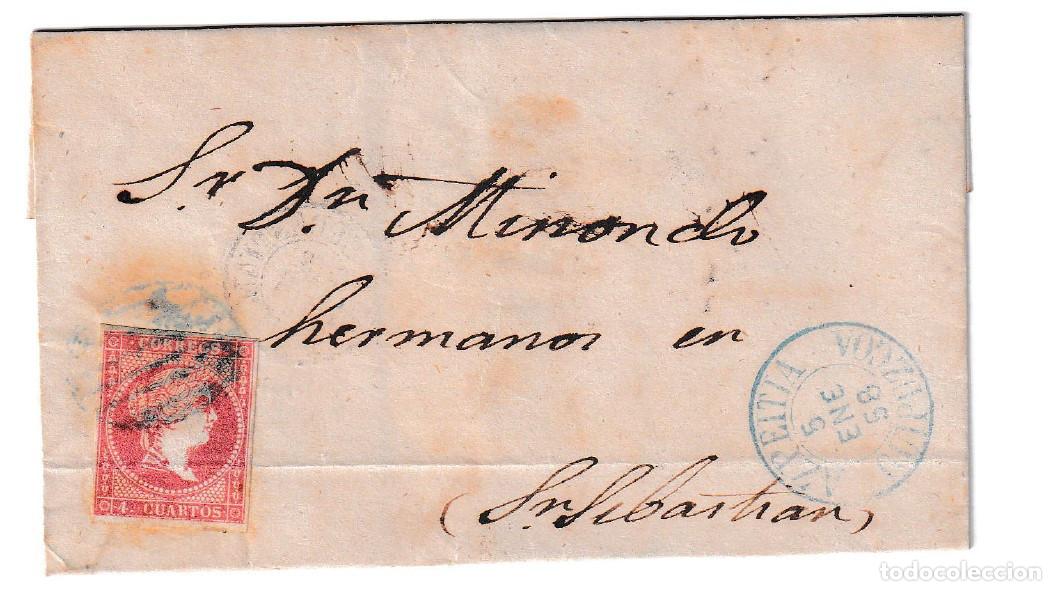 Sr. Dn. Minondo
hermanos en
(Sn. Sebastian)
CORREOS
4 CUARTOS
AZPEITIA
5
ENE
58
GUIPUZCOA
todocoleccion